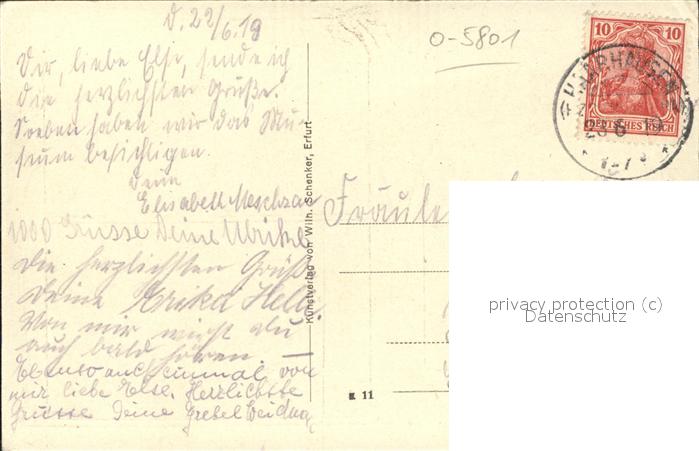 D. 22/6.19
Dir, liebe Else, sende ich
die herzlichsten Grüße.
Soeben haben wir das Mu-
seum besichtigen.
Deine
Elisabeth
1000 Grüsse Deine Ulrike
Die herzlichsten Grüße
Deine Erika Held.
Von mir wirst du
auch bald hören. —
Ebenso auch einmal von
mir liebe Else. Herzlichste
Grüsse Deine Gretel
Kunstverlag von Wilh. Schenker, Erfurt
0-5801
10 10
DEUTSCHES REICH
HAARHAUSEN
Fräule
11
privacy protection (c)
Datenschutz